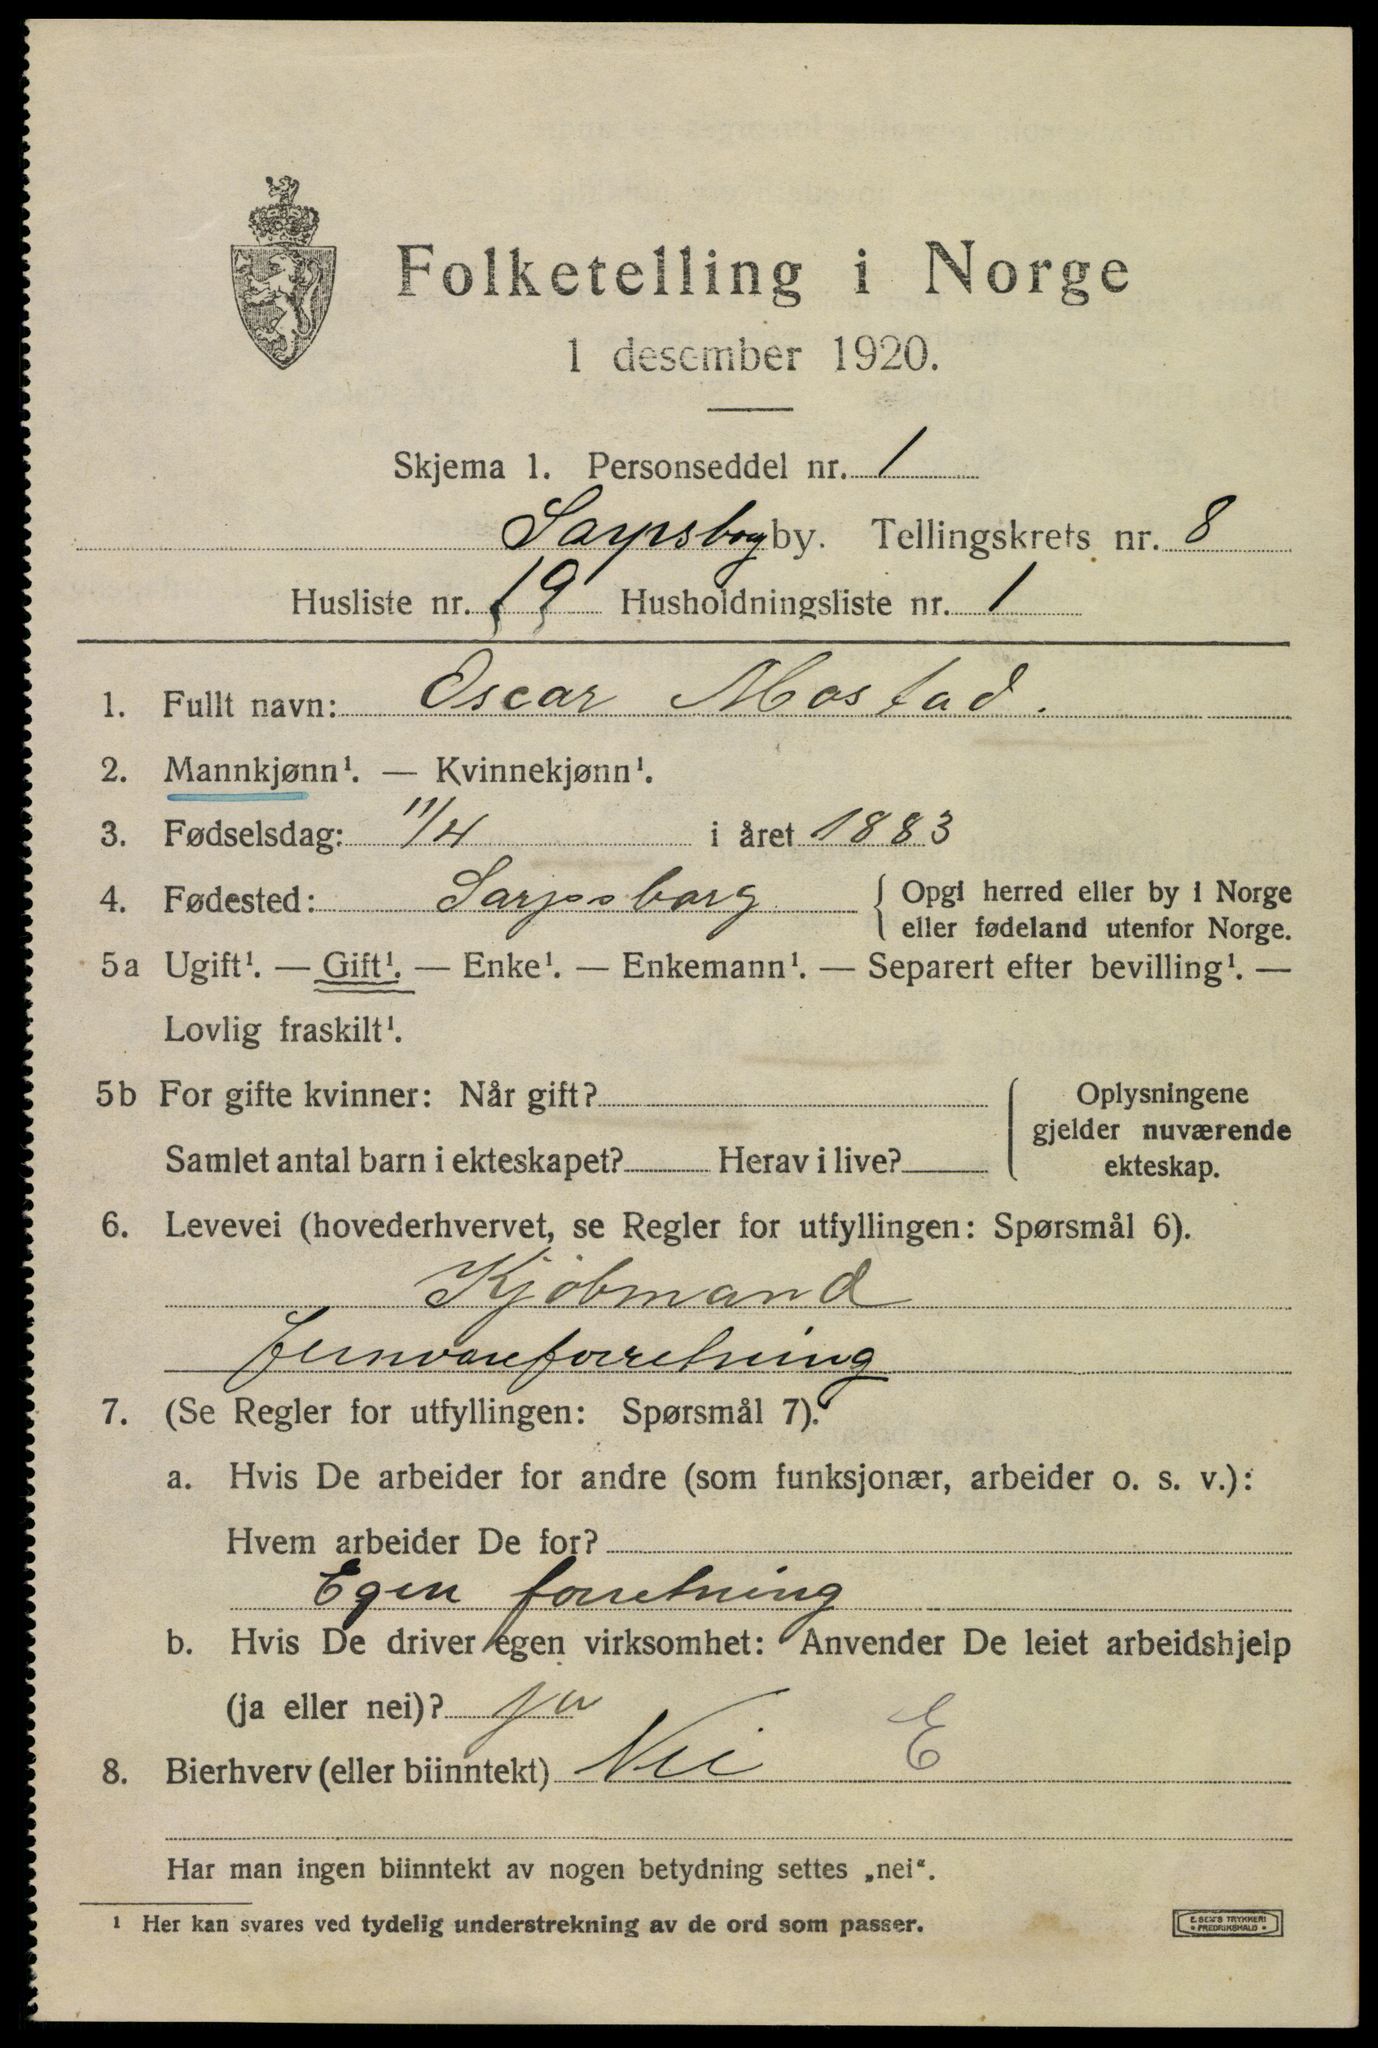 Folketelling i Norge
1 desember 1920.
Skjema 1. Personseddel nr. 1
Sarpsborg by. Tellingskrets nr. 8
Husliste nr. 19 Husholdningsliste nr. 1
1. Fullt navn: Oscar Mostad.
2. Mannkjønn¹. — Kvinnekjønn¹.
3. Fødselsdag: 11/4 i året 1883
4. Fødested: Sarpsborg { Opgi herred eller by i Norge
eller fødeland utenfor Norge.
5a Ugift¹. — Gift¹. — Enke¹. — Enkemann¹. — Separert efter bevilling¹. —
Lovlig fraskilt¹.
5b For gifte kvinner: Når gift? Oplysningene
gjelder nuværende
Samlet antal barn i ekteskapet? Herav i live? ekteskap.
6. Levevei (hovederhvervet, se Regler for utfyllingen: Spørsmål 6).
Kjöbmand
Jernvareforretning
7. (Se Regler for utfyllingen: Spørsmål 7).
a. Hvis De arbeider for andre (som funksjonær, arbeider o. s. v.):
Hvem arbeider De for?
Egen forretning
b. Hvis De driver egen virksomhet: Anvender De leiet arbeidshjelp
(ja eller nei)? ja
8. Bierhverv (eller biinntekt) Nei E
Har man ingen biinntekt av nogen betydning settes „nei“.
¹ Her kan svares ved tydelig understrekning av de ord som passer.
E. SEM'S TRYKKERI
• FREDRIKSHALD •